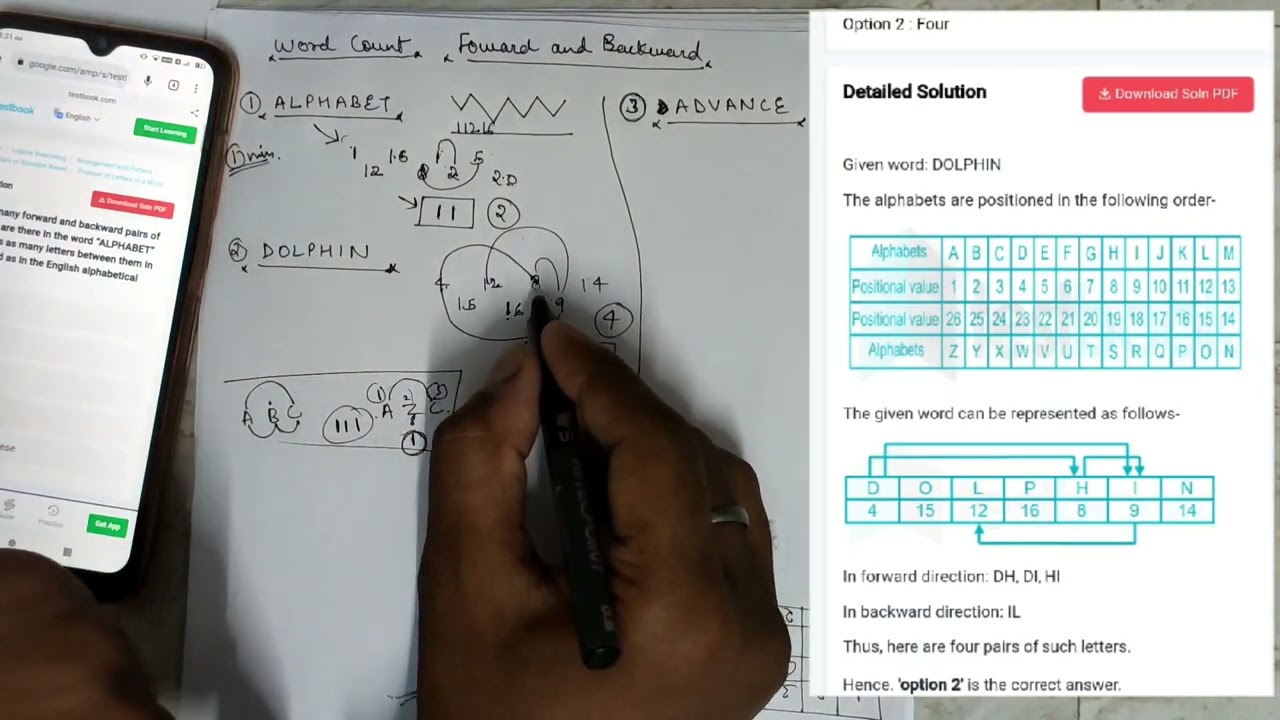 Word Count Foward and Backward
① ALPHABET
112.16
① min.
1 1.6 5
12 2
2.D
11 ②
② DOLPHIN
4. 12 8 14
1.5 16 9
④
A B C
111
① 2) ③
.A C.
①
③ ADVANCE
google.com/amp/s/testl
testbook.com
estbook
English
Start Learning
Download Soln PDF
nany forward and backward pairs of
are there in the word "ALPHABET"
s as many letters between them in
d as in the English alphabetical
ese
Practice
Get App
Option 2 : Four
Detailed Solution
Download Soln PDF
Given word: DOLPHIN
The alphabets are positioned in the following order-
Alphabets A B C D E F G H I J K L M
Positional value 1 2 3 4 5 6 7 8 9 10 11 12 13
Positional value 26 25 24 23 22 21 20 19 18 17 16 15 14
Alphabets Z Y X W V U T S R Q P O N
The given word can be represented as follows-
D O L P H I N
4 15 12 16 8 9 14
In forward direction: DH, DI, HI
In backward direction: IL
Thus, here are four pairs of such letters.
Hence, 'option 2' is the correct answer.